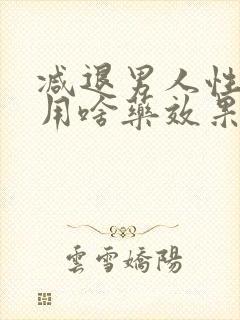 减退男人性
用啥药效果
雲雪嬌陽